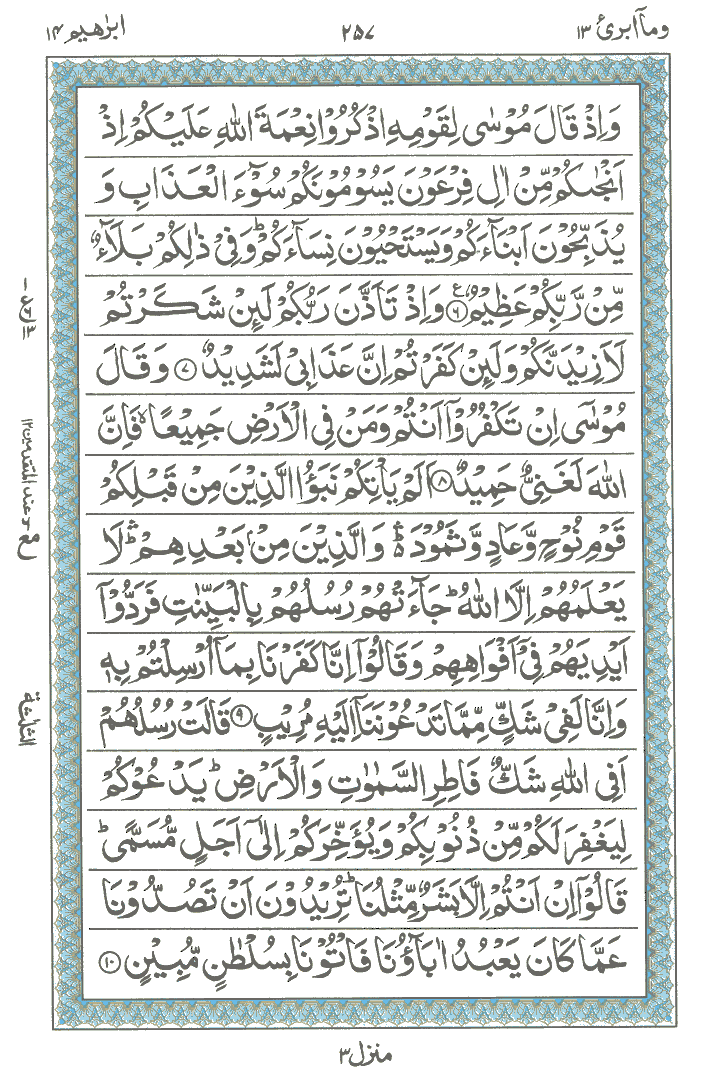 وماۤ ابرئ ١٣
٢٥٧
ابرٰهيم ١٤
وَاِذْ قَالَ مُوْسٰى لِقَوْمِهِ اذْكُرُوْا نِعْمَةَ اللّٰهِ عَلَيْكُمْ اِذْ
اَنْجٰىكُمْ مِّنْ اٰلِ فِرْعَوْنَ يَسُوْمُوْنَكُمْ سُوْٓءَ الْعَذَابِ وَ
يُذَبِّحُوْنَ اَبْنَآءَكُمْ وَيَسْتَحْيُوْنَ نِسَآءَكُمْ ؕ وَفِيْ ذٰلِكُمْ بَلَآءٌ
مِّنْ رَّبِّكُمْ عَظِيْمٌ ۶ وَاِذْ تَاَذَّنَ رَبُّكُمْ لَئِنْ شَكَرْتُمْ
لَاَزِيْدَنَّكُمْ وَلَئِنْ كَفَرْتُمْ اِنَّ عَذَابِيْ لَشَدِيْدٌ ۷ وَقَالَ
مُوْسٰٓى اِنْ تَكْفُرُوْٓا اَنْتُمْ وَمَنْ فِى الْاَرْضِ جَمِيْعًا ۙ فَاِنَّ
اللّٰهَ لَغَنِيٌّ حَمِيْدٌ ۸ اَلَمْ يَاْتِكُمْ نَبَؤُا الَّذِيْنَ مِنْ قَبْلِكُمْ
قَوْمِ نُوْحٍ وَّعَادٍ وَّثَمُوْدَ ۛؕ وَالَّذِيْنَ مِنْۢ بَعْدِهِمْ ۛؕ لَا
يَعْلَمُهُمْ اِلَّا اللّٰهُ ؕ جَآءَتْهُمْ رُسُلُهُمْ بِالْبَيِّنٰتِ فَرَدُّوْٓا
اَيْدِيَهُمْ فِيْٓ اَفْوَاهِهِمْ وَقَالُوْٓا اِنَّا كَفَرْنَا بِمَآ اُرْسِلْتُمْ بِهٖ
وَاِنَّا لَفِيْ شَكٍّ مِّمَّا تَدْعُوْنَنَآ اِلَيْهِ مُرِيْبٍ ۹ قَالَتْ رُسُلُهُمْ
اَفِى اللّٰهِ شَكٌّ فَاطِرِ السَّمٰوٰتِ وَالْاَرْضِ ؕ يَدْعُوْكُمْ
لِيَغْفِرَ لَكُمْ مِّنْ ذُنُوْبِكُمْ وَيُؤَخِّرَكُمْ اِلٰٓى اَجَلٍ مُّسَمًّى ؕ
قَالُوْٓا اِنْ اَنْتُمْ اِلَّا بَشَرٌ مِّثْلُنَا ؕ تُرِيْدُوْنَ اَنْ تَصُدُّوْنَا
عَمَّا كَانَ يَعْبُدُ اٰبَآؤُنَا فَاْتُوْنَا بِسُلْطٰنٍ مُّبِيْنٍ ۱۰
منزل ٣